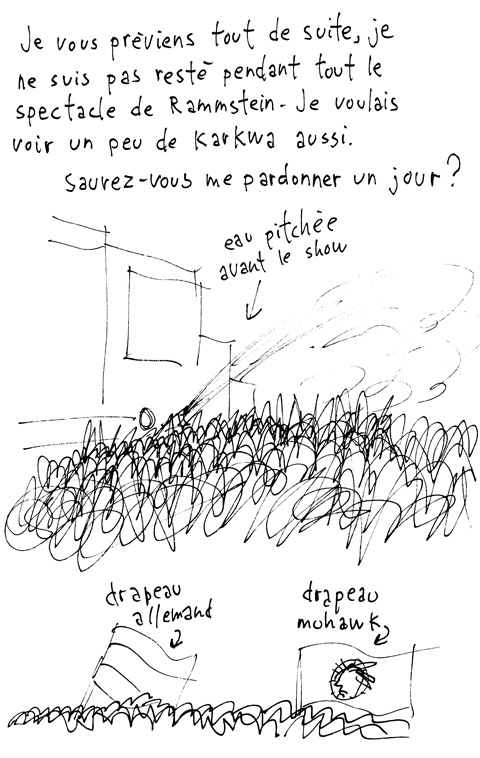 Je vous prèviens tout de suite, je
ne suis pas resté pendant tout le
spectacle de Rammstein. Je voulais
voir un peu de Karkwa aussi.
Saurez-vous me pardonner un jour?
eau pitchée
avant le show
drapeau
allemand
drapeau
mohawk